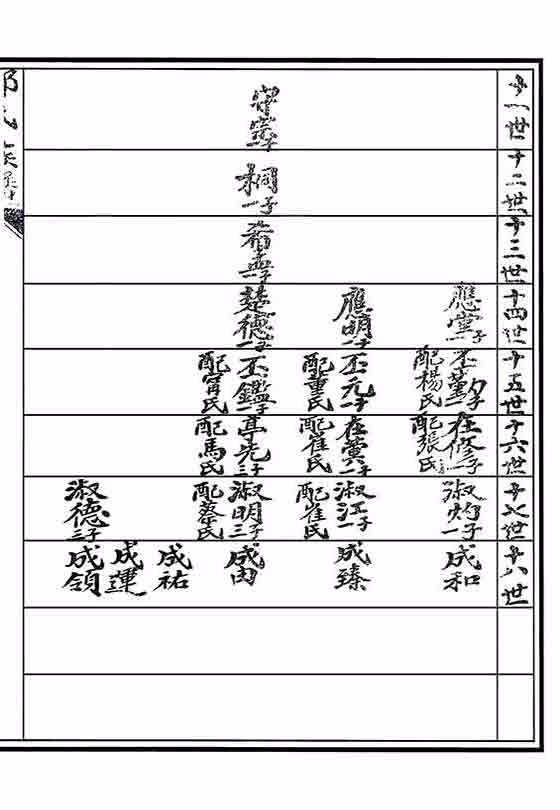 十一世
守
十二世
桐 一子
十三世
希
十四世
應黨 子
應明 一子
楚德
十五世
丕 子
配楊氏
丕元 一子
配董氏
丕鑑 一子
配甯氏
十六世
在修 子
配張氏
在黨 子
配崔氏
亭先 三子
配馬氏
十七世
淑灼 一子
淑江 一子
配崔氏
淑明 三子
配蔡氏
淑德 三子
十八世
成和
成臻
成肉
成祐
成運
成領